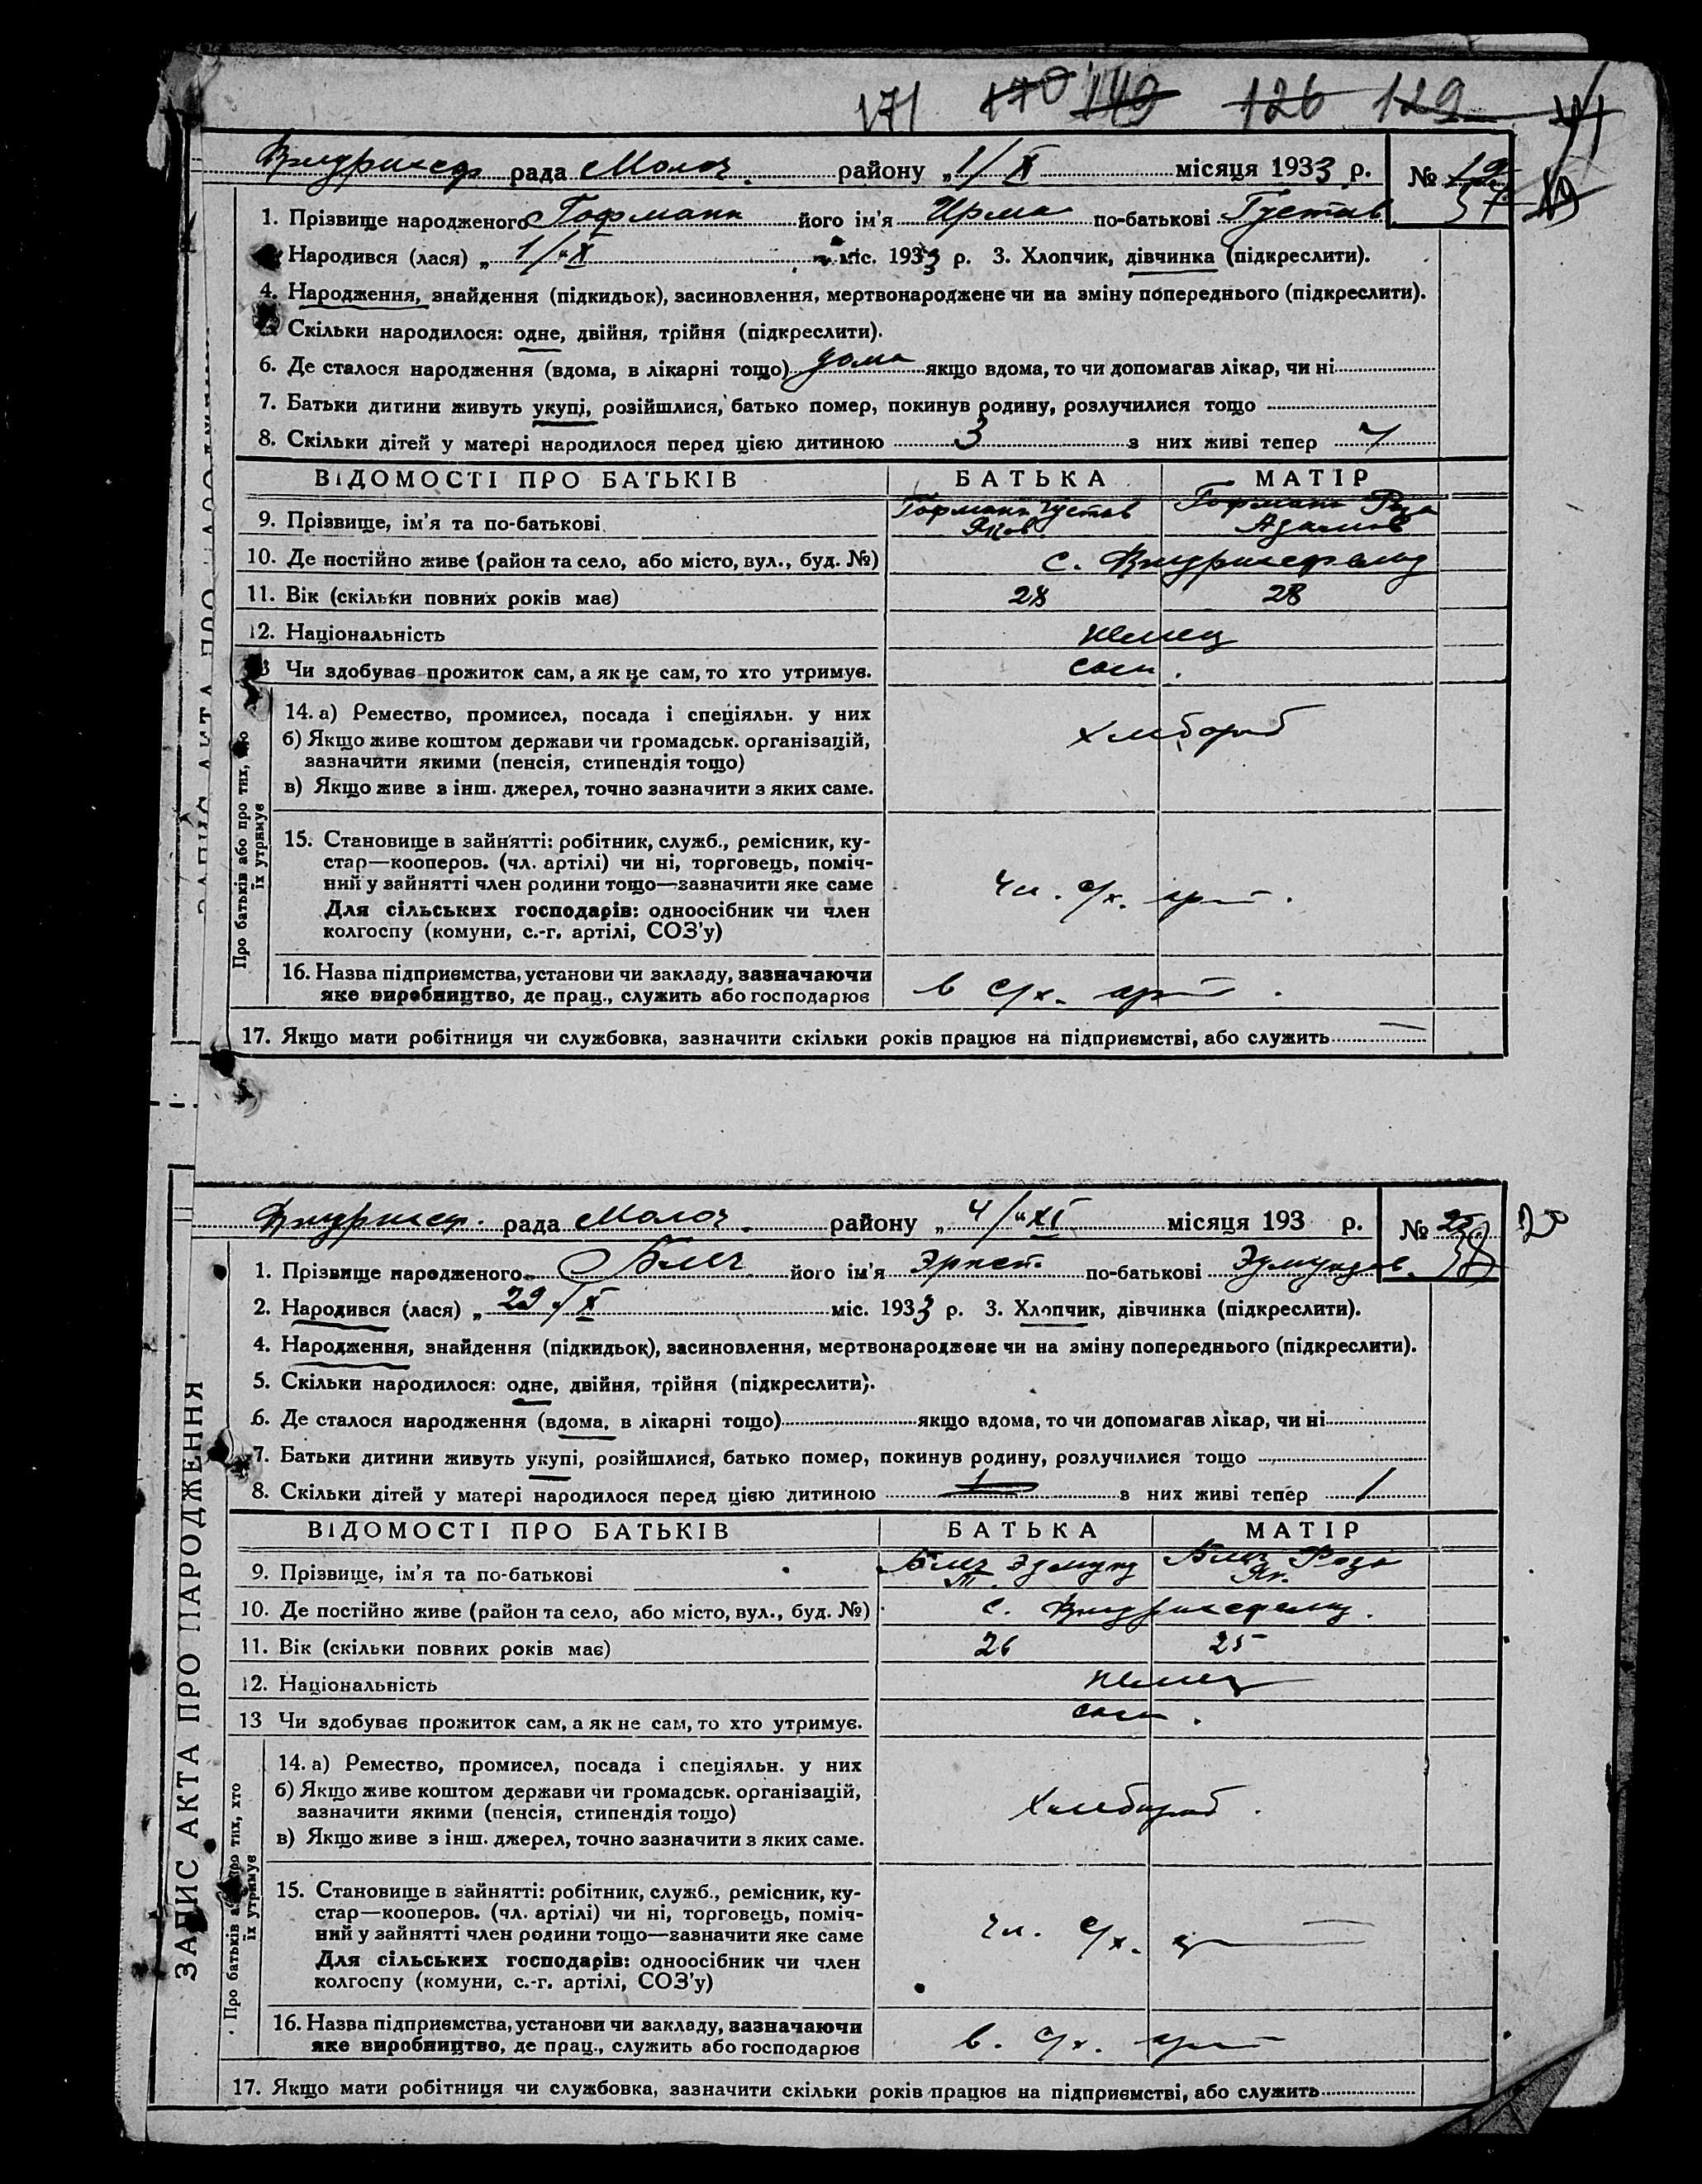 171 170 149 126 129
рада Молоч. району „1/X місяця 1933 р. № 19
37
1. Прізвище народженого Гофманн його ім'я Ирма по-батькові Густав
Народився (лася) „ 1/„X міс. 1933 р. 3. Хлопчик, дівчинка (підкреслити).
4. Народження, знайдення (підкидьок), засиновлення, мертвонароджене чи на зміну попереднього (підкреслити).
Скільки народилося: одне, двійня, трійня (підкреслити).
6. Де сталося народження (вдома, в лікарні тощо) дома якщо вдома, то чи допомагав лікар, чи ні
7. Батьки дитини живуть укупі, розійшлися, батько помер, покинув родину, розлучилися тощо
8. Скільки дітей у матері народилося перед цією дитиною 3 з них живі тепер
ВІДОМОСТІ ПРО БАТЬКІВ БАТЬКА МАТІР
9. Прізвище, ім'я та по-батькові Гофманн Густав Яков. Гофманн Роза Адамов
10. Де постійно живе (район та село, або місто, вул., буд. №) с.
11. Вік (скільки повних років має) 28 28
12. Національність немец
Чи здобуває прожиток сам, а як не сам, то хто утримує. сам.
Про батьків або про тих, хто їх утримує
14. а) Ремество, промисел, посада і спеціяльн. у них
б) Якщо живе коштом держави чи громадськ. організацій,
зазначити якими (пенсія, стипендія тощо) хлебороб
в) Якщо живе з інш. джерел, точно зазначити з яких саме.
15. Становище в зайнятті: робітник, служб., ремісник, ку-
стар—кооперов. (чл. артілі) чи ні, торговець, поміч-
ний у зайнятті член родини тощо—зазначити яке саме чл. с/х. арт.
Для сільських господарів: одноосібник чи член
колгоспу (комуни, с.-г. артілі, СОЗ'у)
16. Назва підприємства, установи чи закладу, зазначаючи
яке виробництво, де прац., служить або господарює в с/х. арт.
17. Якщо мати робітниця чи службовка, зазначити скільки років працює на підприємстві, або служить —
ЗАПИС АКТА ПРО НАРОДЖЕННЯ
рада Молоч. району „ 4/„XI місяця 193 р. № 20
38
1. Прізвище народженого його ім'я Эрнст. по-батькові Эдмундов.
2. Народився (лася) „ 29/X міс. 1933 р. 3. Хлопчик, дівчинка (підкреслити).
4. Народження, знайдення (підкидьок), засиновлення, мертвонароджене чи на зміну попереднього (підкреслити).
5. Скільки народилося: одне, двійня, трійня (підкреслити).
6. Де сталося народження (вдома, в лікарні тощо) якщо вдома, то чи допомагав лікар, чи ні
7. Батьки дитини живуть укупі, розійшлися, батько помер, покинув родину, розлучилися тощо
8. Скільки дітей у матері народилося перед цією дитиною 1 з них живі тепер 1
ВІДОМОСТІ ПРО БАТЬКІВ БАТЬКА МАТІР
9. Прізвище, ім'я та по-батькові Эдмунд Роза Як.
10. Де постійно живе (район та село, або місто, вул., буд. №) с.
11. Вік (скільки повних років має) 26 25
12. Національність немец
13 Чи здобуває прожиток сам, а як не сам, то хто утримує. сам.
Про батьків або про тих, хто їх утримує
14. а) Ремество, промисел, посада і спеціяльн. у них
б) Якщо живе коштом держави чи громадськ. організацій,
зазначити якими (пенсія, стипендія тощо) хлебороб.
в) Якщо живе з інш. джерел, точно зазначити з яких саме.
15. Становище в зайнятті: робітник, служб., ремісник, ку-
стар—кооперов. (чл. артілі) чи ні, торговець, поміч-
ний у зайнятті член родини тощо—зазначити яке саме чл. с/х.
Для сільських господарів: одноосібник чи член
колгоспу (комуни, с.-г. артілі, СОЗ'у)
16. Назва підприємства, установи чи закладу, зазначаючи
яке виробництво, де прац., служить або господарює в. с/х. арт
17. Якщо мати робітниця чи службовка, зазначити скільки років працює на підприємстві, або служить